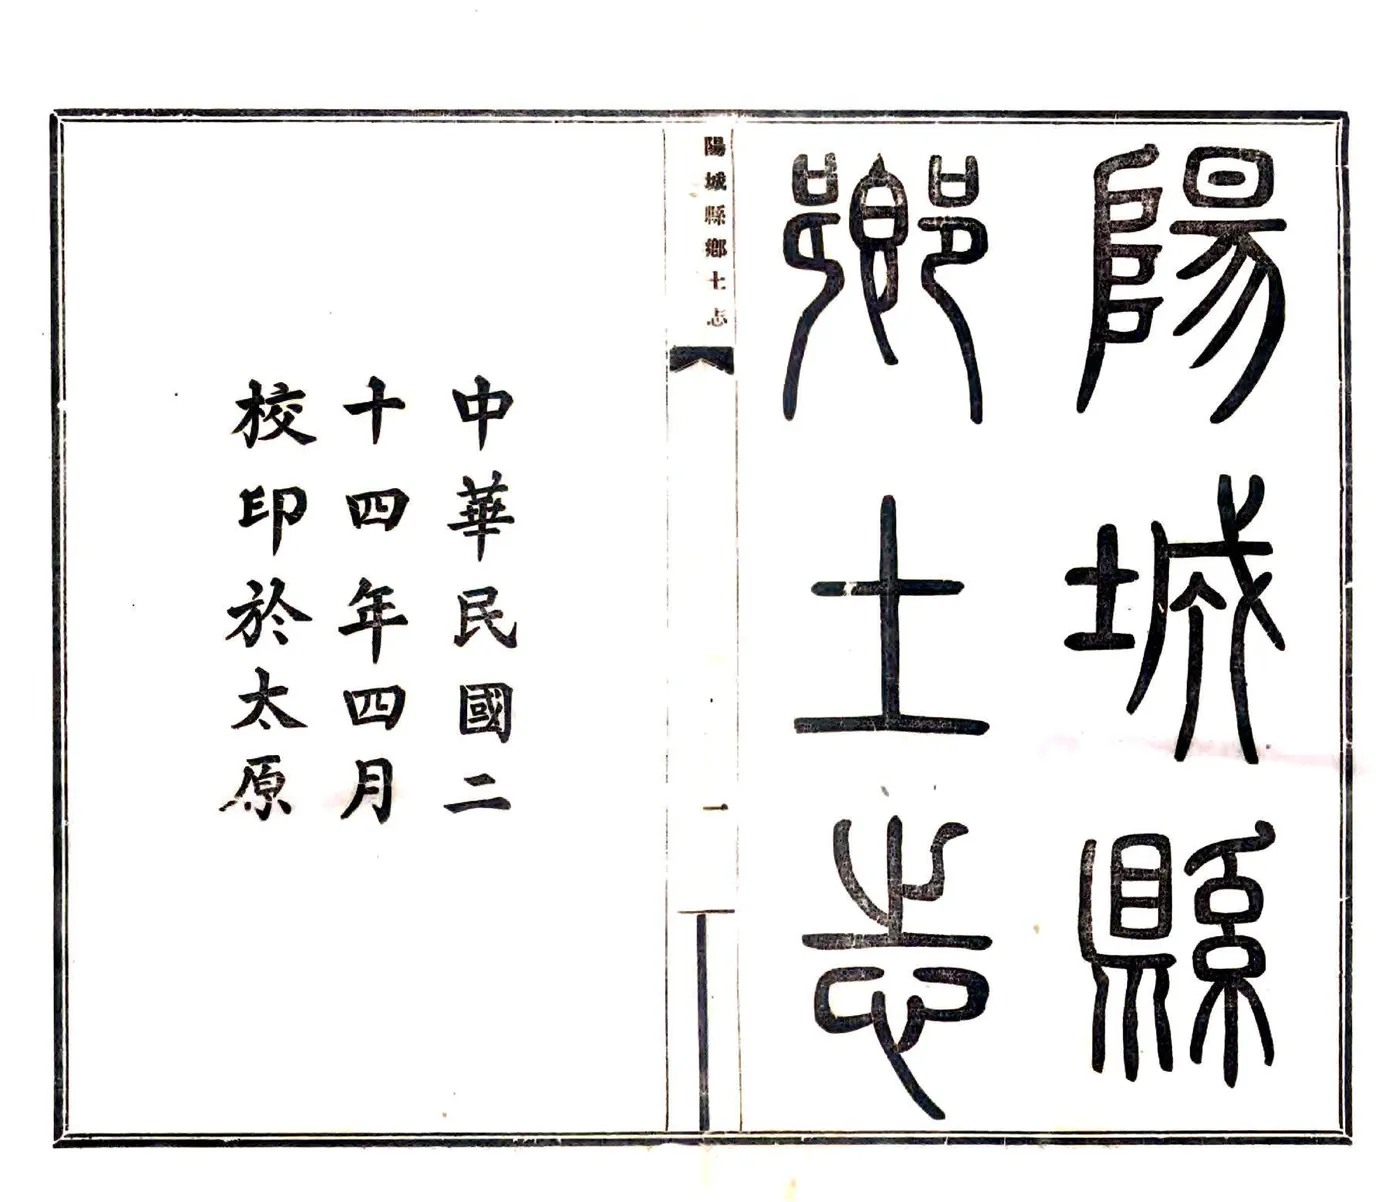 陽城縣
鄉土志
陽城縣鄉土志
一
中華民國二
十四年四月
校印於太原